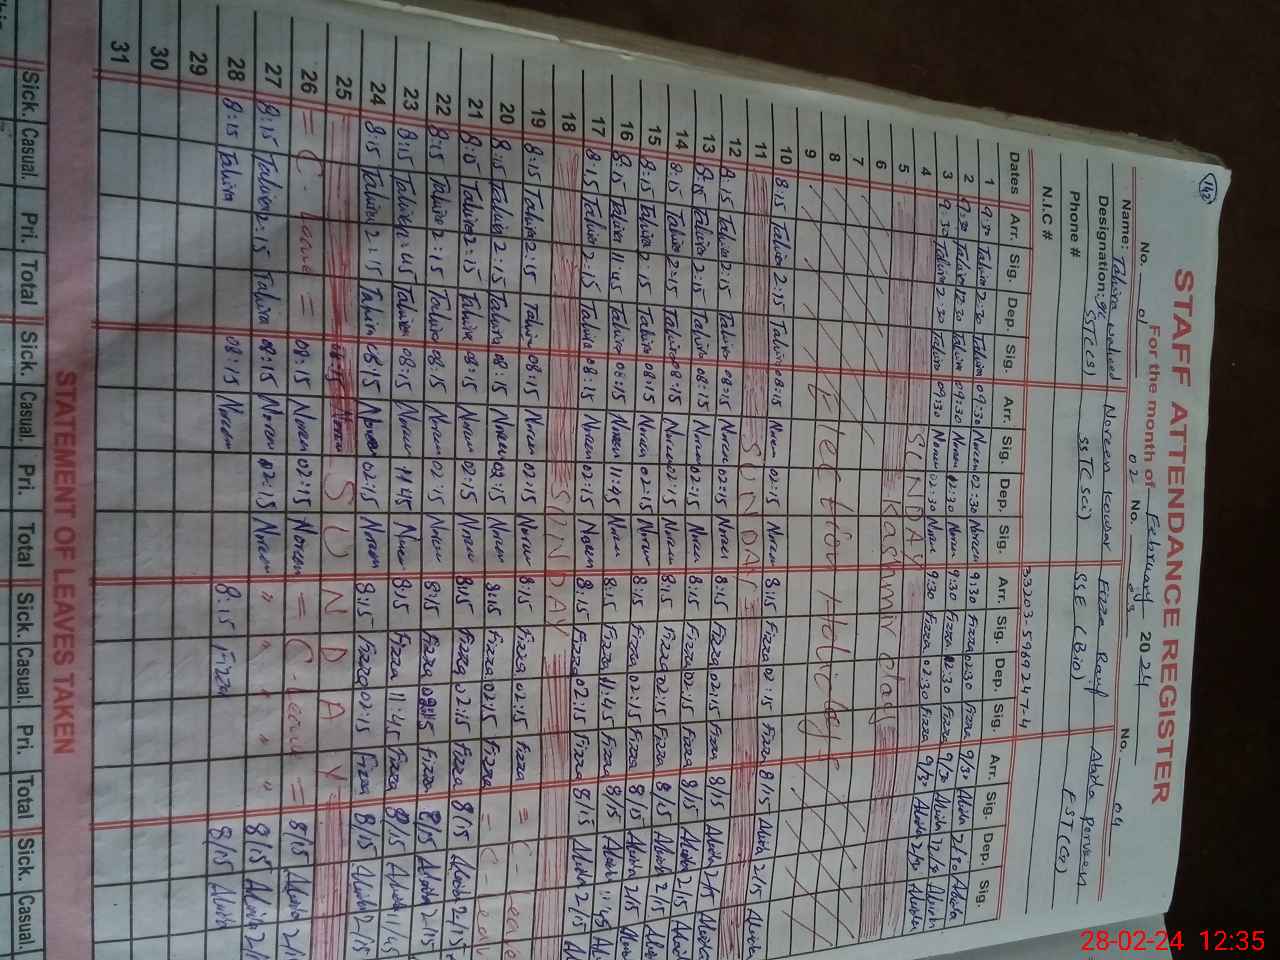 142
STAFF ATTENDANCE REGISTER
For the month of February 2024
No. 01 No. 02 No. 03 No. 04
Name: Tahira Noreen Kowsar Fizza Rauf Abida Perveen
Designation: SSTC(S) SSTC(sci) SSE (Bio) EST(G)
Phone #
N.I.C # 33203-5969247-4
Dates Arr. Sig. Dep. Sig. Arr. Sig. Dep. Sig. Arr. Sig. Dep. Sig. Arr. Sig. Dep. Sig.
1 9:30 Tahira 2:30 Tahira 09:30 Noreen 02:30 Noreen 9:30 Fizza 02:30 Fizza 9/30 Abida 2/30 Abida
2 9:30 Tahira 12:30 Tahira 09:30 Noreen 12:30 Noreen 9:30 Fizza 12:30 Fizza 9/30 Abida Abida
3 9:30 Tahira 2:30 Tahira 09:30 Noren 02:30 Noren 9:30 Fizza 02:30 Fizza 9/30 Abida 2/30 Abida
4 SUNDAY
5 = Kashmir day
6
7 Election Holidays
8
9
10 8:15 Tahira 2:15 Tahira 08:15 Noren 02:15 Noren 8:15 Fizza 02:15 Fizza 8/15 Abida 2/15 Abida
11 SUNDAY
12 8:15 Tahira 2:15 Tahira 08:15 Noren 02:15 Noren 8:15 Fizza 02:15 Fizza 8/15 Abida 2/15 Abida
13 8:15 Tahira 2:15 Tahira 08:15 Noren 02:15 Noren 8:15 Fizza 02:15 Fizza 8/15 Abida 2/15 Abida
14 8:15 Tahira 2:15 Tahira 08:15 Noren 02:15 Noren 8:15 Fizza 02:15 Fizza 8/15 Abida 2/15 Abida
15 8:15 Tahira 2:15 Tahira 08:15 Noren 02:15 Noren 8:15 Fizza 02:15 Fizza 8/15 Abida 2/15
16 8:15 Tahira 11:45 Tahira 08:15 Noren 11:45 Noren 8:15 Fizza 11:45 Fizza 8/15 Abida 11/45
17 8:15 Tahira 2:15 Tahira 08:15 Noren 02:15 Noren 8:15 Fizza 02:15 Fizza 8/15 Abida 2/15
18 SUNDAY
19 8:15 Tahira 2:15 Tahira 08:15 Noren 02:15 Noren 8:15 Fizza 02:15 Fizza = C-Leave
20 8:15 Tahira 2:15 Tahira 08:15 Noren 02:15 Noren 8:15 Fizza 02:15 Fizza = C-
21 8:15 Tahira 2:15 Tahira 08:15 Noren 02:15 Noren 8:15 Fizza 02:15 Fizza 8/15 Abida 2/15
22 8:15 Tahira 2:15 Tahira 08:15 Noren 02:15 Noren 8:15 Fizza Fizza 8/15 Abida 2/15
23 8:15 Tahira 11:45 Tahira 08:15 Noren 11:45 Noren 8:15 Fizza 11:45 Fizza 8/15 Abida 11/45
24 8:15 Tahira 2:15 Tahira 08:15 Noren 02:15 Noren 8:15 Fizza 02:15 Fizza 8/15 Abida 2/15
25 SUNDAY
26 = C-Leave = 08:15 Noren 02:15 Noren = C-Leave = 8/15 Abida
27 8:15 Tahira 2:15 Tahira 08:15 Noren 02:15 Noren " " " " " 8/15 Abida
28 8:15 Tahira 08:15 Noren 8:15 Fizza 8/15 Abida
29
30
31
STATEMENT OF LEAVES TAKEN
Sick. Casual. Pri. Total Sick. Casual. Pri. Total Sick. Casual. Pri. Total Sick. Casual.
28-02-24 12:35